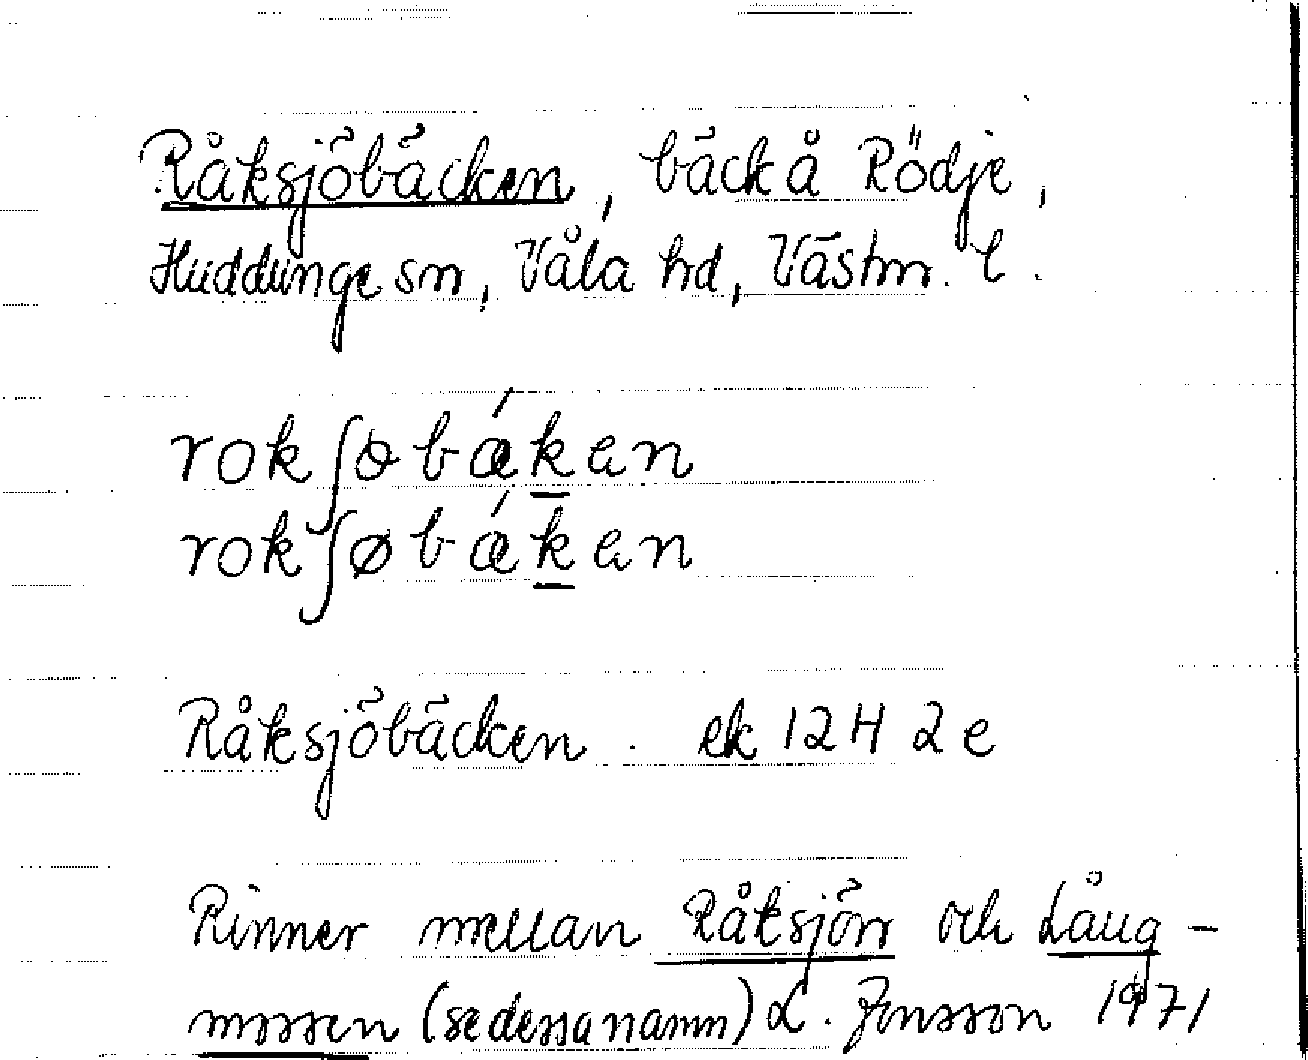 Råksjöbäcken, bäck å Rödje,
Huddunge sn, Våla hd, Västm. l.
rokʃɵbǽk̲en
rokʃøbǽk̲en
Råksjöbäcken. ek 12H 2e
Rinner mellan Råksjön och Lång-
mossen (se dessa namn) L. Jonsson 1971